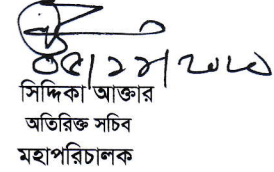 ০৫/১২/২০২০
সিদ্দিকা আক্তার
অতিরিক্ত সচিব
মহাপরিচালক